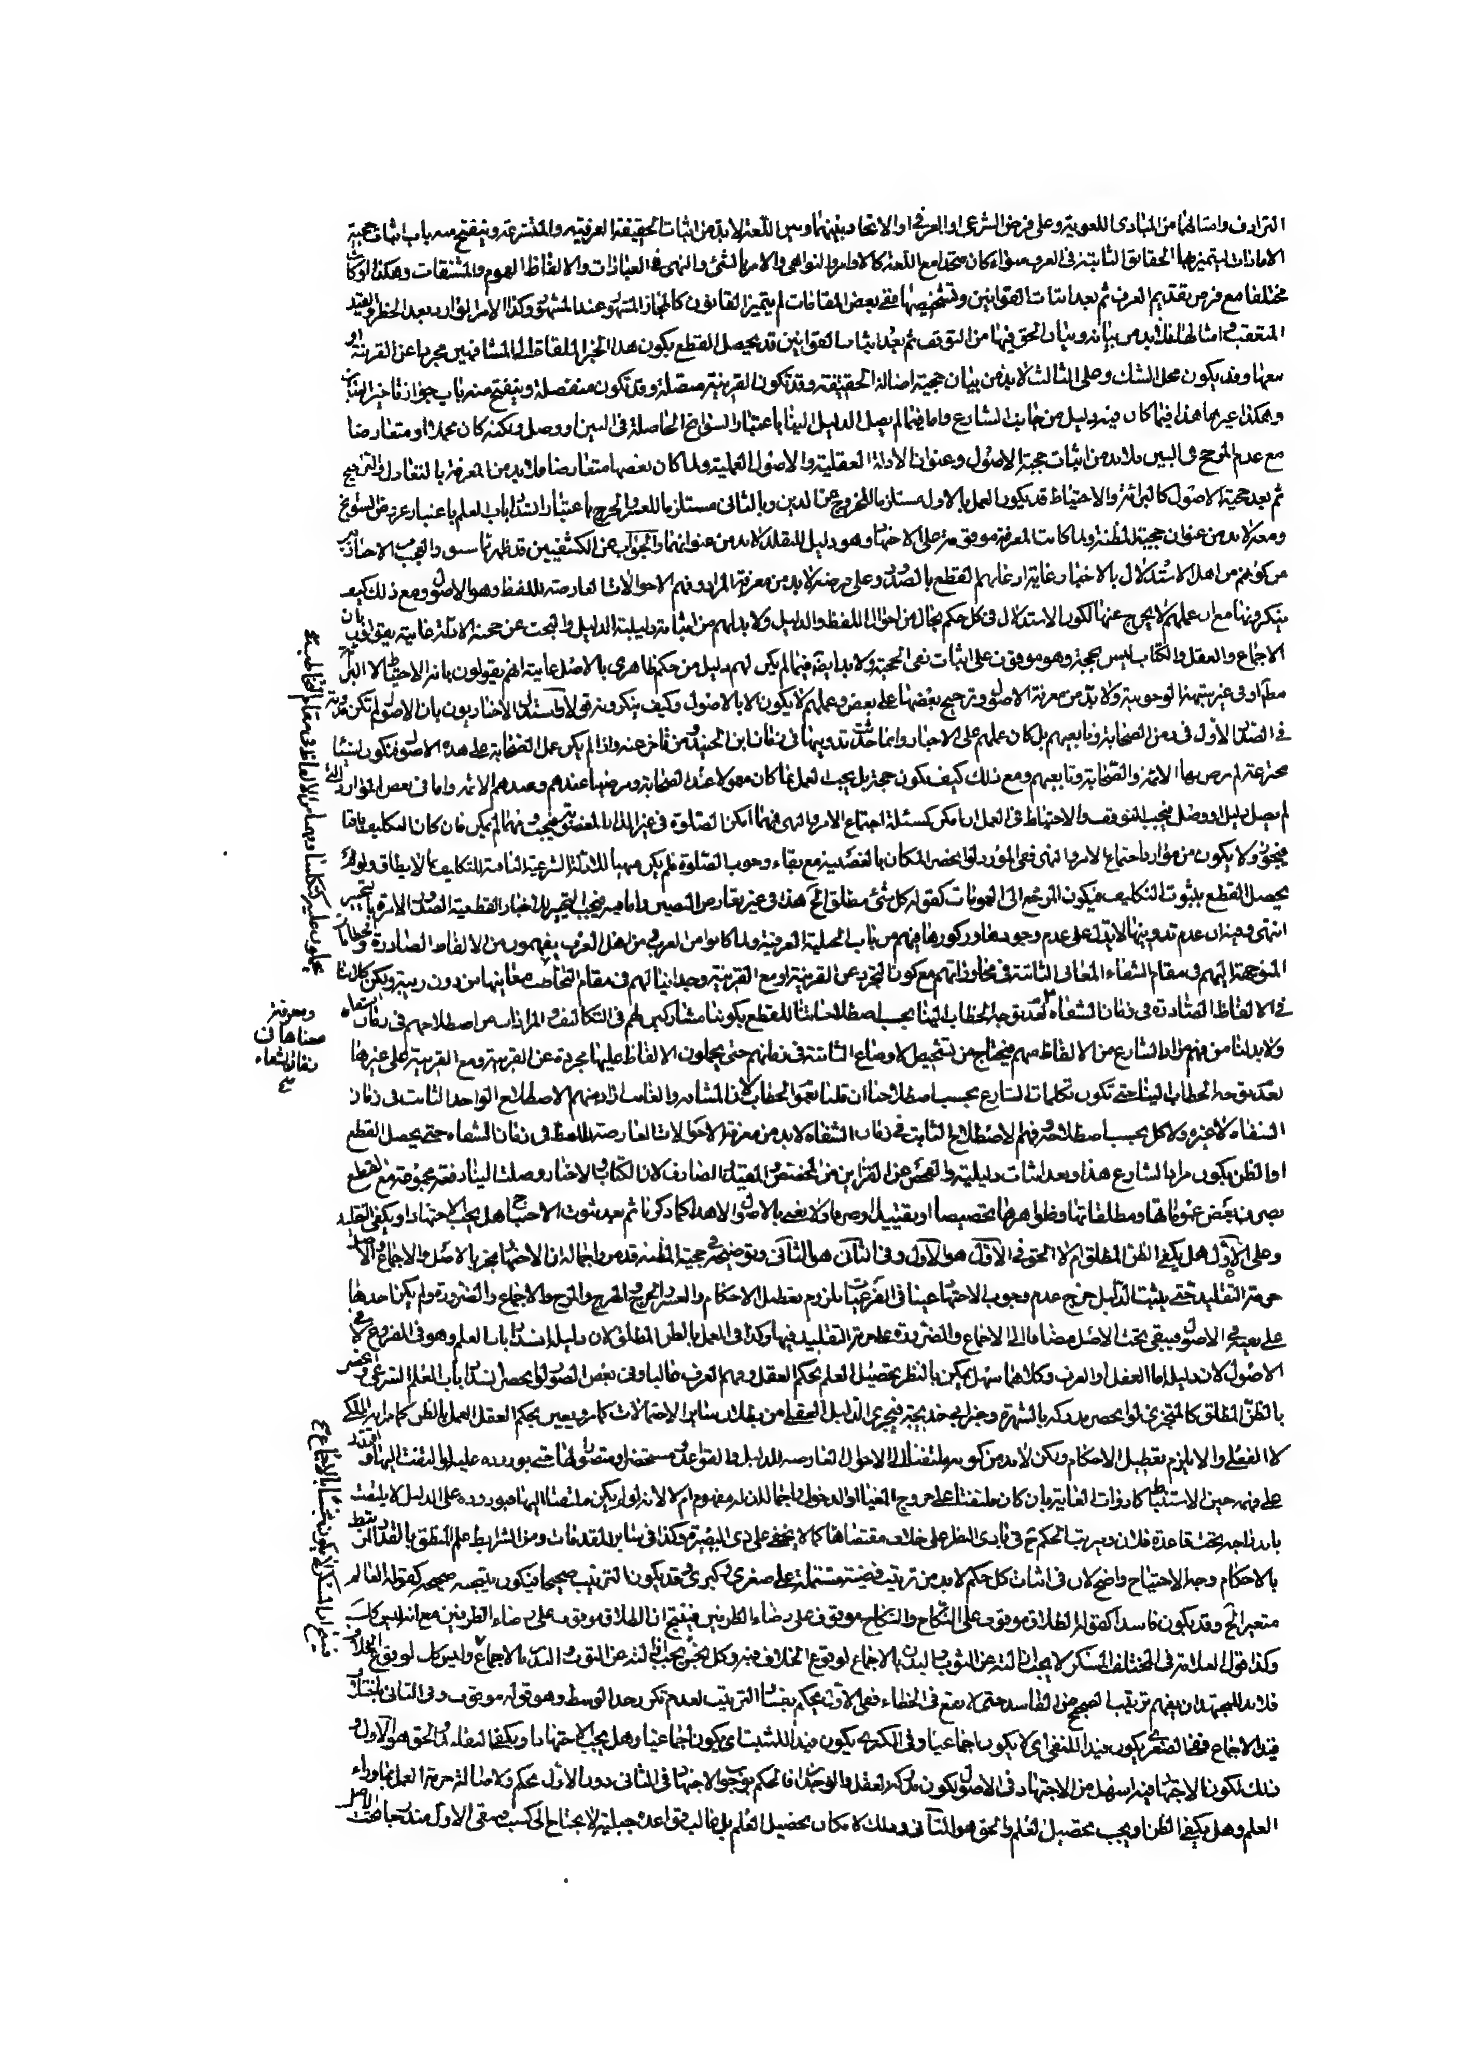 الترادف وامثالها من المبادى اللغوية وعلى فرض الشرعى او العرفى او الاتحاد بينهما وبين اللغة لابد من اثبات الحقيقة العرفية والمتشرعة وينفتح منه باب اثبات حجية
الامارات ليتميز بها الحقائق الثابتة فى العرف سواء كان متحدا مع اللغة كالاوامر والنواهى والامر بالشئ والنهى فى العبادات والالفاظ العموم والمشتقات وهكذا او كان
مختلفا مع فرض تقديم العرف ثم بعد اثبات القوانين وتشخيصها ففى بعض المقامات لم يتميز القانون كالمجاز المشهور عند المشهور وكذا الامر الوارد بعد الحظر والقيد
المتعقب وامثالها فلابد من بيانه وبيان الحق فيها من التوقف ثم بعد اثبات القوانين قد يحصل القطع بكون هذا الخبر الملقاة الى المشافهين مجردا عن القرينة او
معها وقد يكون محل الشك وعلى الثالث لابد من بيان حجية اصالة الحقيقة وقد تكون القرينة متصلة وقد تكون منفصلة وينفتح منه باب جواز تاخير البيان
وهكذا غيرها هذا فيما كان فيه دليل من جانب الشارع واما فيما لم يصل الدليل الينا باعتبار السوانح الحاصلة فى البين او وصل ولكنه كان مجملا او متعارضا
مع عدم المرجح فى البين فلابد من اثبات حجية الاصول وعنوان الادلة العقلية والاصول العملية ولما كان بعضها متعارضا فلابد من المعرفة بالتعادل والتراجيح
ثم بعد حجية الاصول كالبرائة والاحتياط قد يكون العمل بالاول مستلزما للخروج عن الدين وبالثانى مستلزما للعسر والحرج باعتبار انسداد باب العلم باعتبار عروض السوانح
ومعه لابد من عنوان حجية المظنة ولما كانت المعرفة موقوفة على الاجتهاد وهو دليل للمقلد لابد من عنوانهما والجواب عن الكشفيين قد ظهر مما سبق والعجب من الاخبارية
من كونهم من اهل الاستدلال بالاخبار غاية ادعائهم القطع بالصدور وعلى فرضه لابد من معرفة المراد وفهم الاحوالات العارضة للفظ وهو الاصول ومع ذلك كيف
ينكرونها مع ان عملهم لا يخرج عنها لكون الاستدلال فى كل حكم بحال من احوال اللفظ والدليل ولابد لهم من اثبات دليلية الدليل والبحث عن حجية الادلة غايته يقولون بان
الاجماع والعقل والكتاب ليس بحجة وهو موقوف على اثبات نفى الحجية ولابد ايضا فيما لم يكن لهم دليل من حكم ظاهرى بالاصل غايته انهم يقولون بانه الاحتياط لا البرائة
مط او فى غير شبهة الوجوبية ولابد من معرفة الاصول وترجيح بعضها على بعض وعملهم لا يكون الا بالاصول وكيف ينكرونه قولا واستدل الاخباريون بان الاصول لم تكن مدونة
فى الصدر الاول فى زمن الصحابة وتابعيهم بل كان عملهم على الاخبار وانما حدث تدوينها فى زمان ابن الجنيد ومن تاخر عنه واذا لم يكن عمل الصحابة على هذه الاصول فتكون اشياء
مخترعة لم يرض بها الائمة والصحابة وتابعيهم ومع ذلك كيف تكون حجة بل يجب العمل بما كان معمولا عند الصحابة ومرضيا عندهم وعندهم الائمة واما فى بعض الموارد التى
لم يصل دليل او وصل فيجب التوقف والاحتياط فى العمل ان امكن كمسئلة اجتماع الامر والنهى فمهما امكن الصلوة فى غير الدار المغصوبة فيجب ومهما لم يمكن فان كان التكليف باقيا
فيجوز ولا يكون من موارد اجتماع الامر والنهى ففى المورد لو انحصر المكان بالغصبية مع بقاء وجوب الصلوة فلم يكن منهيا للادلة الشرعية النافية للتكليف بما لا يطاق ولو لم
يحصل القطع بثبوت التكليف فيكون المرجع الى العمومات كقوله كل شئ مطلق الخ هذا فى غير تعارض النصين واما فيه فيجب التخيير للاخبار القطعية الصدور الآمرة بالتخيير
انتهى وفيه ان عدم تدوينها لا يدل على عدم وجودها وركوزها فيهم من باب الجبلية العرفية ولما كانوا من العرف ومن اهل العرب يفهمون من الالفاظ الصادرة والخطابات
المتوجهة اليهم فى مقام الشفاه المعانى الثابتة فى محاوراتهم مع كون التجرد عن القرينة او مع القرينة وجدانيا لهم فى مقام التخاطب معانيها من دون ريبة ولكن كلامنا
فى الالفاظ الصادرة فى زمان الشفاه بعد توجه الخطاب الينا بحسب اصطلاحاتنا للقطع بكوننا مشاركين لهم فى التكاليف والمراد من اصطلاحهم فى زمان الشفاه
ولابد لنا من فهم مراد الشارع من الالفاظ فهم فيحتاج من تشخيص الاوضاع الثابتة فى زمانهم حتى يحملون الالفاظ عليها مجردة عن القرينة ومع القرينة على غيرها
بعد توجه الخطاب الينا حتى تكون تكلمات الشارع بحسب اصطلاحنا ان قلنا بعموم الخطاب لان المشافه والغائب ارادتهم الاصطلاح الواحد الثابت فى زمان
الشفاه لا غيره ولا كل بحسب اصطلاحه وفهم الاصطلاح الثابت فى زمان الشفاه لابد من معرفة الاحوالات العارضة للفظ فى زمان الشفاه حتى يحصل القطع
او الظن بكون مراد الشارع هذا وبعد اثبات دليليته والفحص عن القرائن من المخصص والمقيد الصارف لان الكتاب والاخبار وصلت الينا دفعة محفوفة مع القطع
بصرف بعض عموماتها ومطلقاتها وظواهرها تخصيصا او تقييدا او صرفا ولا نعنى بالاصول الا هذا كما ذكرنا ثم بعد ثبوت الاحتياج هل يجب الاجتهاد او يكفى التقليد
وعلى الاول هل يكفى الظن المطلق ام لا الحق فى الاول هو الاول وفى الثانى هو الثانى وتوضيحه فى حجية المظنة قد مر واجماله ان الاجتهاد يجزى بالاصل والاجماع والاصل
حرمة التقليد حتى يثبت الدليل خرج عدم وجوب الاجتهاد عينا فى الفرعيات للزوم تعطيل الاحكام والعسر والحرج والهرج والمرج والاجماع والضرورة ولم يكن احدها
على تعينه فى الاصول فيبقى تحت الاصل مضافا الى الاجماع والضرورة على حرمة التقليد فيها وكذا فى العمل بالظن المطلق لان دليله انسداد باب العلم وهو فى الفروع لا فى
الاصول لان دليله اما العقل او العرف وكلاهما سهل يمكن بالنظر تحصيل العلم بحكم العقل وفهم العرف غالبا وفى بعض الصور لو يحصل انسداد باب العلم الشرعى وانحصر
بالظن المطلق كالمتجزى لو انحصر مدركه بالشهرة وخبر ابى خديجة فيجرى الدليل العقلى من بطلان سائر الاحتمالات كما مر ويعين بحكم العقل العمل بالظن كما مر بالملكة
لا الفعلى والا يلزم تعطيل الاحكام ولكن لابد من كونه ملتفتا الى الاحوال العارضة للدليل والقواعد مستحضرا ومتصورا لها حتى بوروده عليه لو التفت اليها واقتدر
على فهمه حين الاستنباط كادوات الغاية بان كان ملتفتا على خروج المغيا او الدخول او اجماله ان له مفهوم ام لا لانه لو لم يكن ملتفتا اليها فبوروده على الدليل لا يلتفت
باندراجه تحت قاعدة فلان ويرتب الحكم ح فى بادى النظر على خلاف مقتضاها كما لا يخفى على ذى البصيرة وكذا فى سائر المقدمات ومن الشرايط علم المنطق بالقدر المرتبط
بالاحكام وجه الاحتياج واضح لان فى اثبات كل حكم لابد من ترتيب قضية مشتملة على صغرى وكبرى وقد يكون الترتيب صحيحا فيكون نتيجته صحيحة كقوله العالم
متغير الخ وقد يكون فاسدا كقوله الطلاق موقوف على النكاح والنكاح موقوف على رضاء الطرفين فينتج ان الطلاق موقوف على رضاء الطرفين مع انه ليس كذلك
وكذا قول العلامة فى المختلف المسكر لا يجب ازالته عن الثوب والبدن بالاجماع لوقوع الخلاف فيه وكل نجس يجب ازالته عن الثوب والبدن بالاجماع وليس كك لوقوع الخلاف
فلابد للمجتهد ان يفهم ترتيب الصحيح من الفاسد حتى لا يقع فى الخطاء ففى الاول يحكم بفساد الترتيب لعدم تكرر حد الوسط وهو قوله موقوف وفى الثانى يلتفت
قيد الاجماع ففى الصغرى يكون قيدا للنفى اى لا يكون اجماعيا وفى الكبرى يكون قيدا للمثبت اى يكون اجماعيا وهل يجب الاجتهاد او يكفى التقليد الحق هو الاول و
ذلك لكون الاجتهاد فيه اسهل من الاجتهاد فى الاصول لكون مدركه العقل والوجدان فالحكم بوجوب الاجتهاد فى الثانى دون الاول تحكم ولاصالة حرمة العمل بما وراء
العلم وهل يكفى الظن او يجب تحصيل العلم والحق هو الثانى وذلك لامكان تحصيل العلم بل غالب قواعده جبلية لا يحتاج الى كسب فيبقى الاول مندرجا تحت الاصل
ومعرفة
معناها فى
زمان الشفاه
فينتج ان المسكر لا يكون نجسا بالاجماع